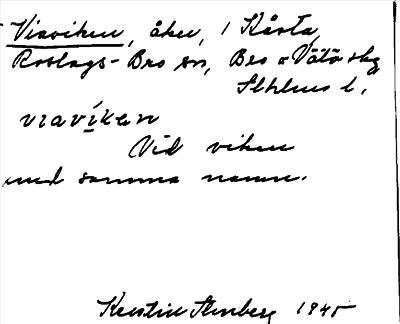 Viaviken, åker, i Kårsta,
Roslags-Bro sn, Bro o Vätö skg
Sthlms l.
viavikan
Vid viken
med samma namn.
Kerstin Stenberg 1945